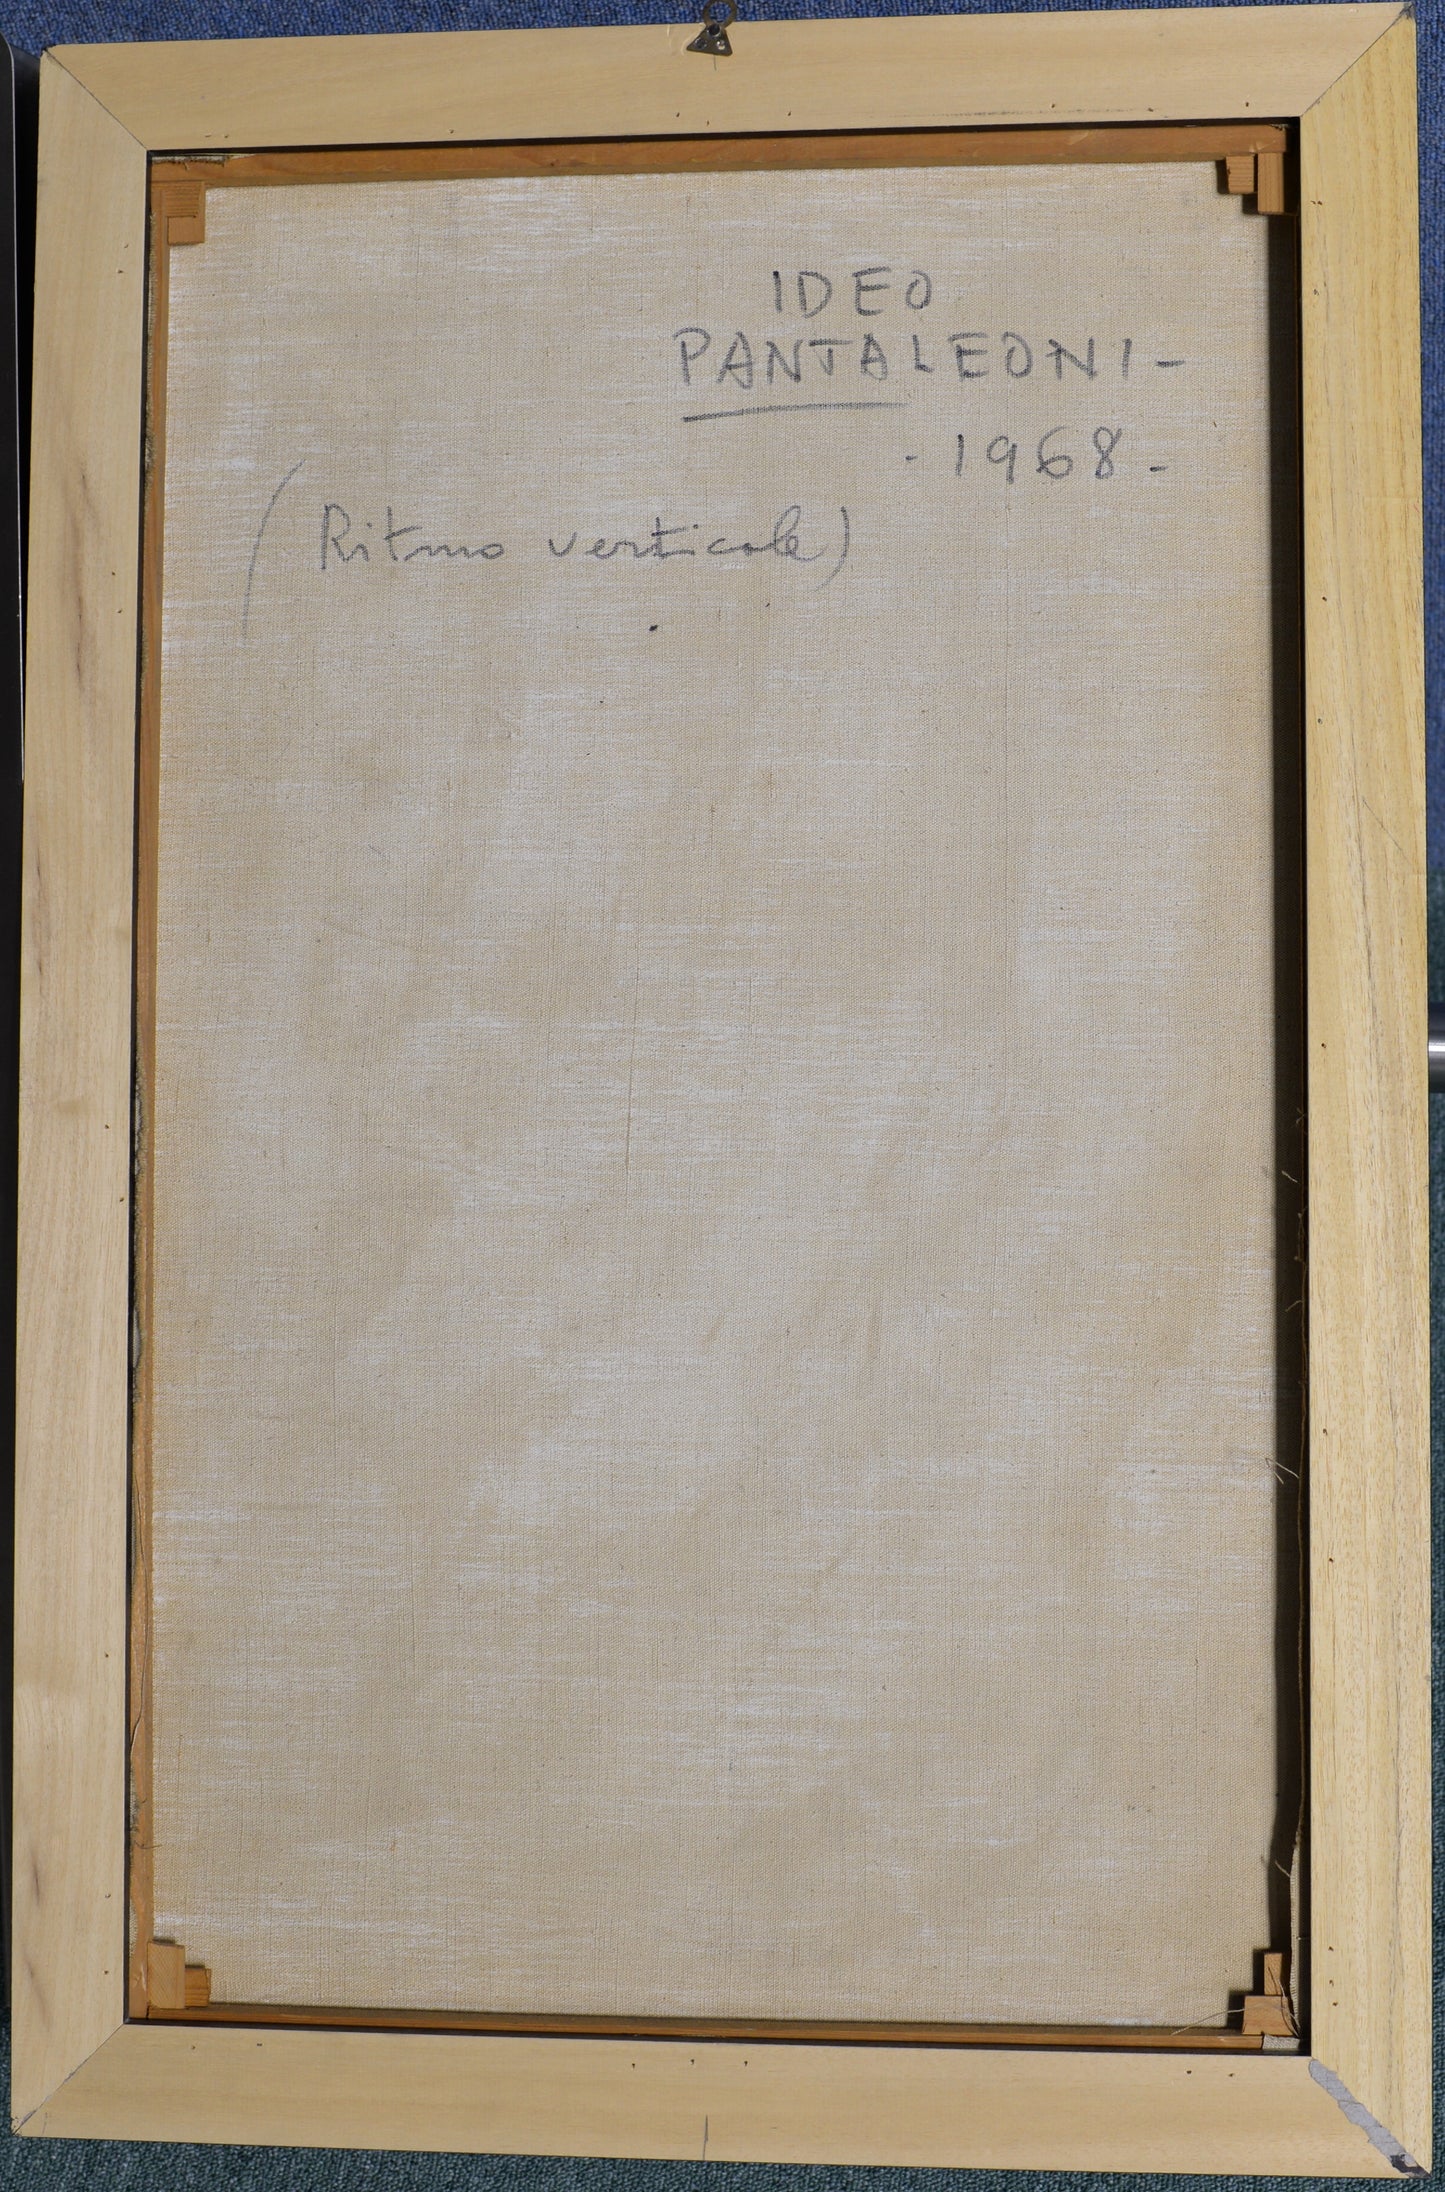 IDEO
PANTALEONI-
- 1968 -
(Ritmo verticale)